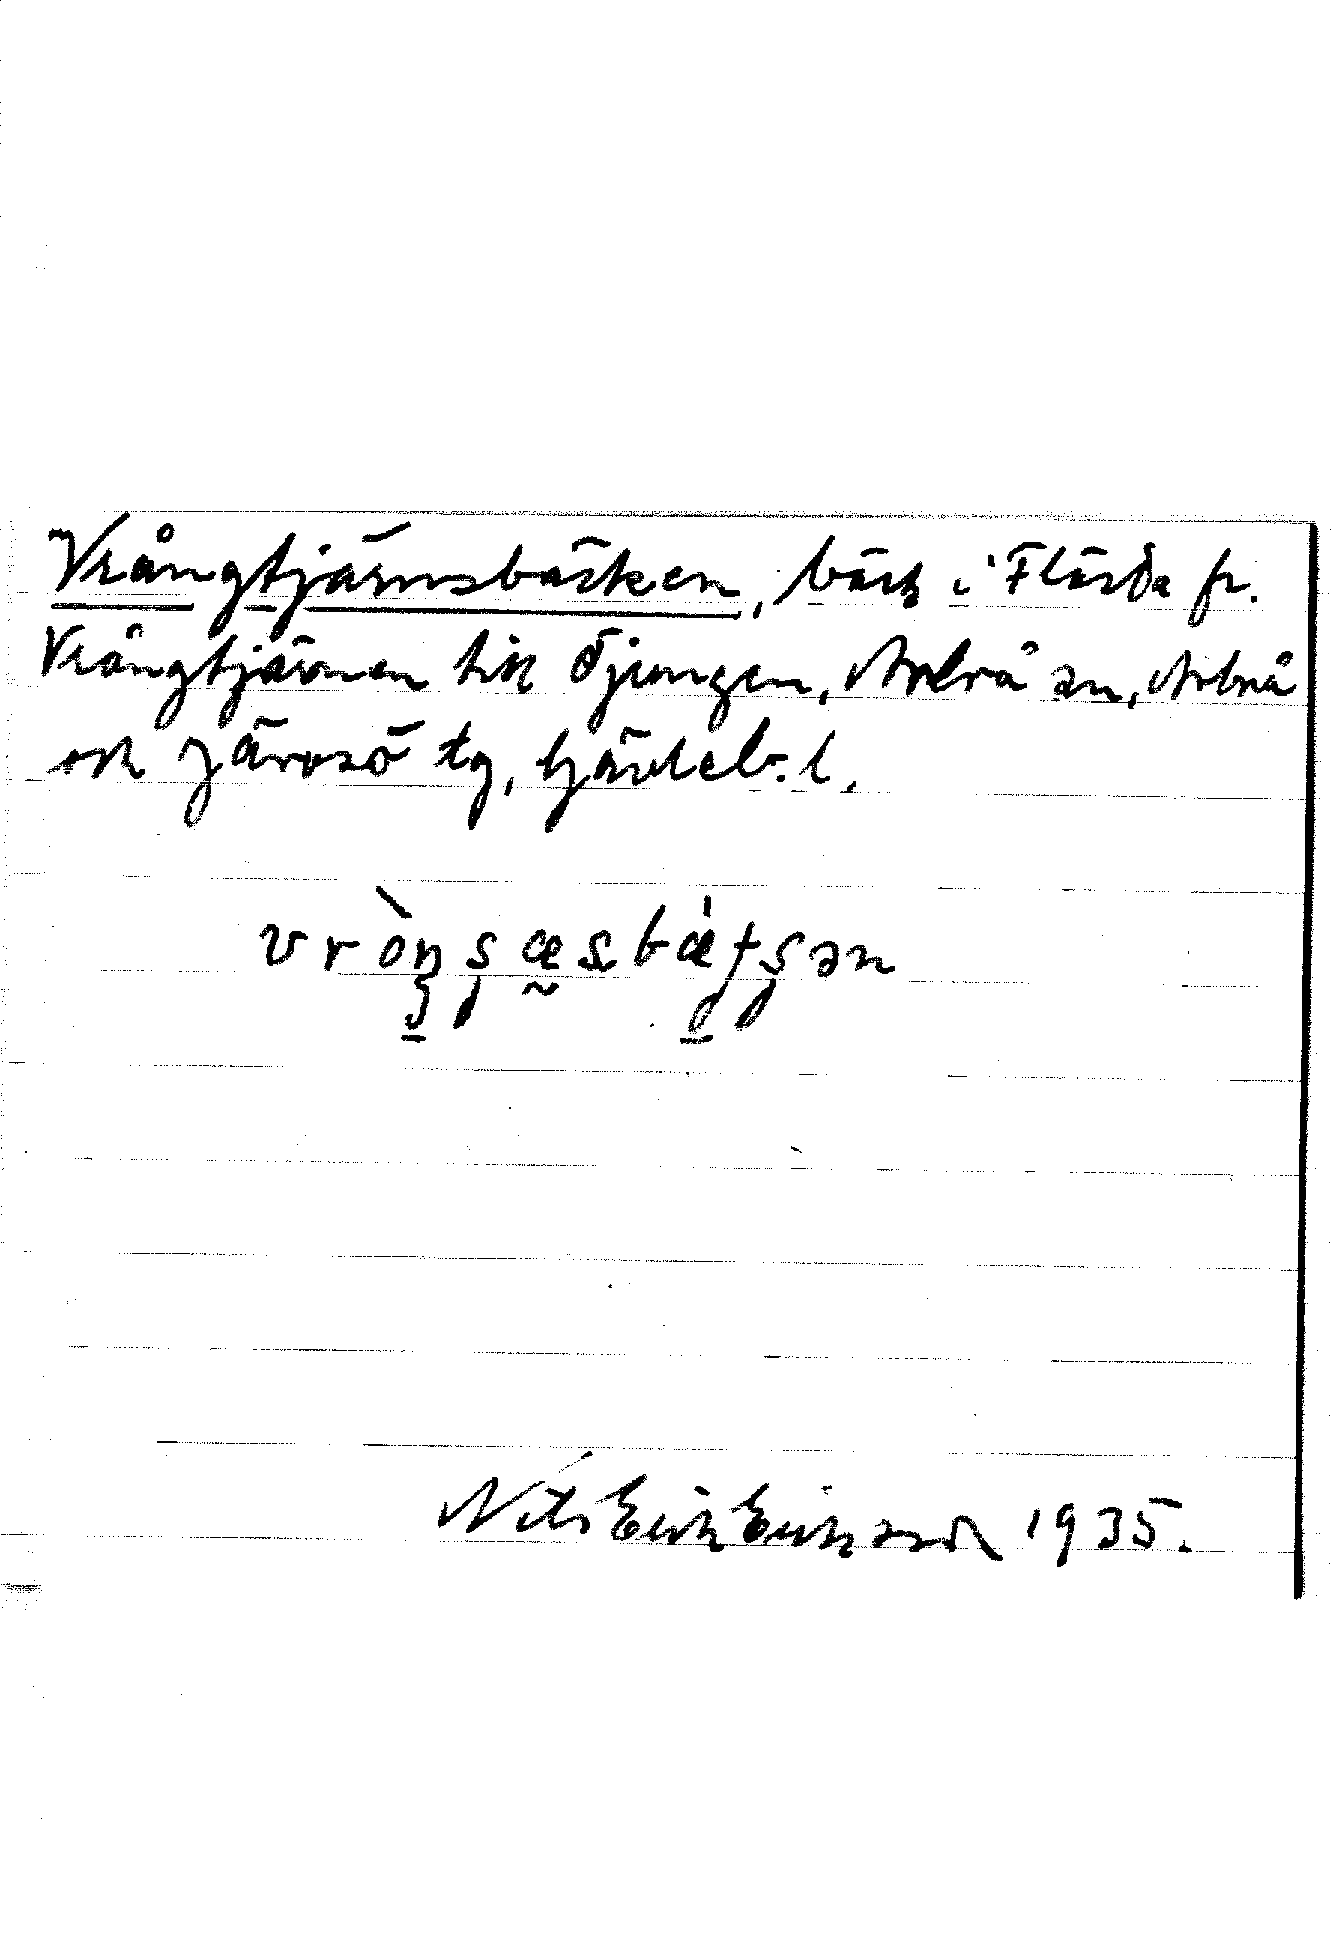 Vrångtjärnsbäcken, bäck i Flästa fr.
Vrångtjärnen till Djungen, Arbrå sn, Arbrå
och Järvsö tg, Gävleb. l.
vròŋʂæsbætʂən
Nils Erik Eriksson 1935.